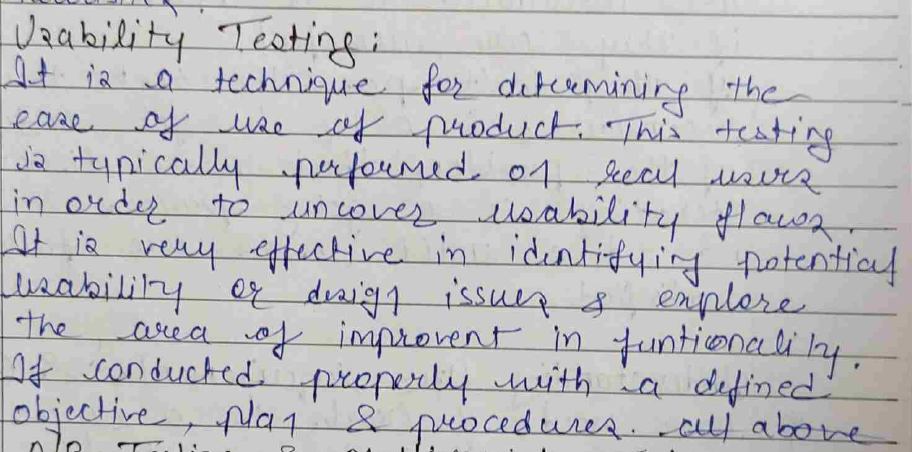 Usability Testing:
It is a technique for determining the
ease of use of product. This testing
is typically performed on real users
in order to uncover usability flaws.
It is very effective in identifying potential
usability or design issues & explore
the area of improvent in funtionality.
If conducted properly with a defined
objective, plan & procedures. all above